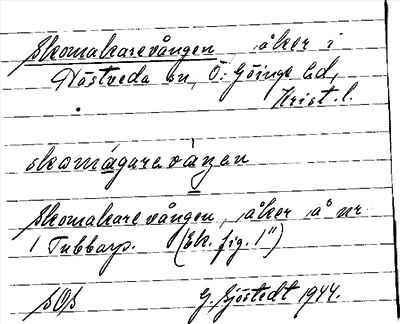 Skomakarevången, åker i
Hästveda sn, Ö. Göinge hd,
Krist. l.
skomágaravàŋen
Skomakarevången, åker å nr
1 Tubbarp. (Ek. fig. 1")
G. Sjöstedt 1944.